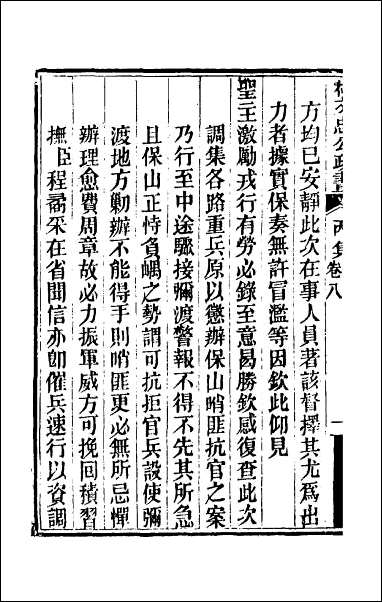 林文忠公政書 丙集卷八
方均已安靜此次在事人員著該督擇其尤爲出
力者據實保奏無許冒濫等因欽此仰見
聖主激勵戎行有勞必錄至意曷勝欽感復查此次
調集各路重兵原以懲辦保山哨匪抗官之案
乃行至中途驟接彌渡警報不得不先其所急
且保山正恃負嵎之勢謂可抗拒官兵設使彌
渡地方勦辦不能得手則哨匪更必無所忌憚
辦理愈費周章故必力振軍威方可挽回積習
撫臣程矞采在省聞信亦卽催兵速行以資調